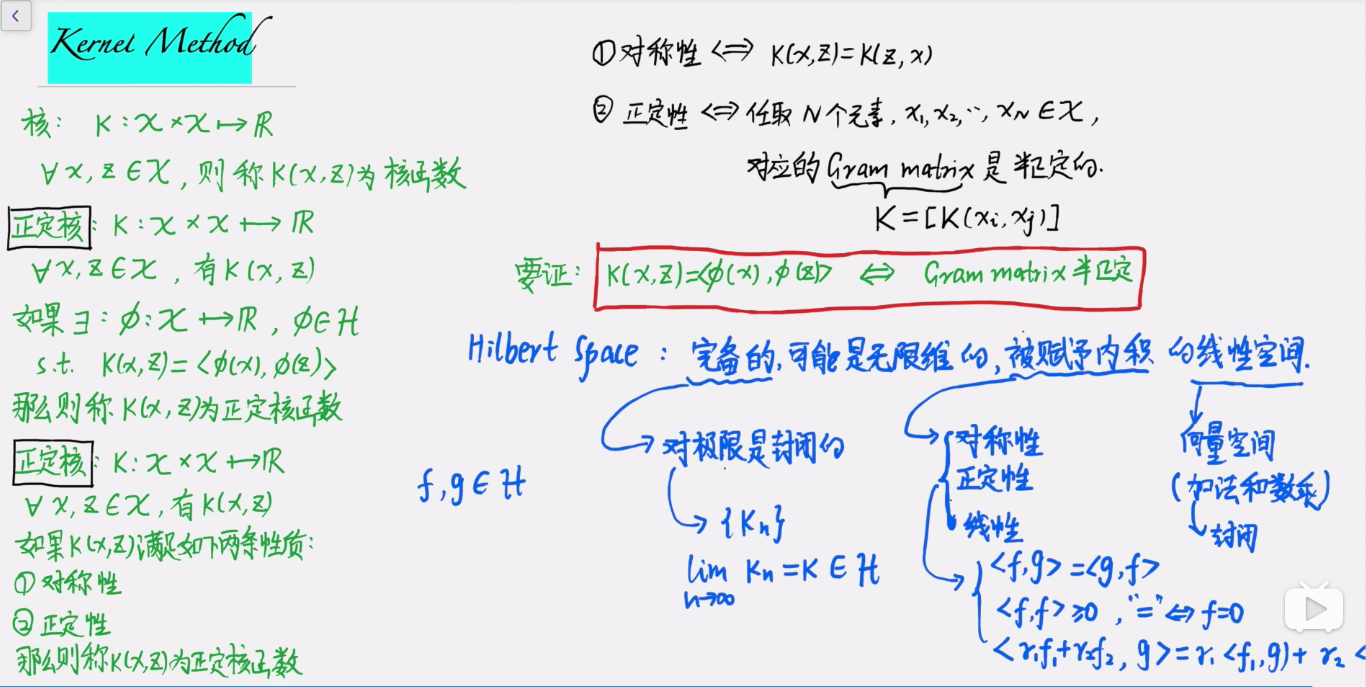 Kernel Method
核: K: X × X ↦ ℝ
∀x, z ∈ X, 则称K(x,z)为核函数
正定核: K: X × X ↦ ℝ
∀x, z ∈ X, 有K(x, z)
如果∃: φ: X ↦ ℝ, φ∈H
s.t. K(x,z) = <φ(x), φ(z)>
那么则称K(x,z)为正定核函数
正定核: K: X × X ↦ ℝ
∀x, z ∈ X, 有K(x,z)
如果K(x,z)满足如下两条性质:
① 对称性
② 正定性
那么则称K(x,z)为正定核函数
① 对称性 <=> K(x,z)=K(z,x)
② 正定性 <=> 任取N个元素, x₁, x₂, ⋯, x_N ∈ X,
对应的Gram matrix是半正定的.
K = [K(xᵢ, xⱼ)]
要证: K(x,z)=<φ(x), φ(z)> <=> Gram matrix半正定
Hilbert Space: 完备的, 可能是无限维的, 被赋予内积的线性空间.
对极限是封闭的
{Kₙ}
lim Kₙ = K ∈ H
n→∞
f, g ∈ H
对称性
正定性
线性
<f,g> = <g,f>
<f,f> ≥0, "=" <=> f=0
<r₁f₁+r₂f₂, g> = r₁<f₁,g) + r₂ <
向量空间
(加法和数乘)
封闭